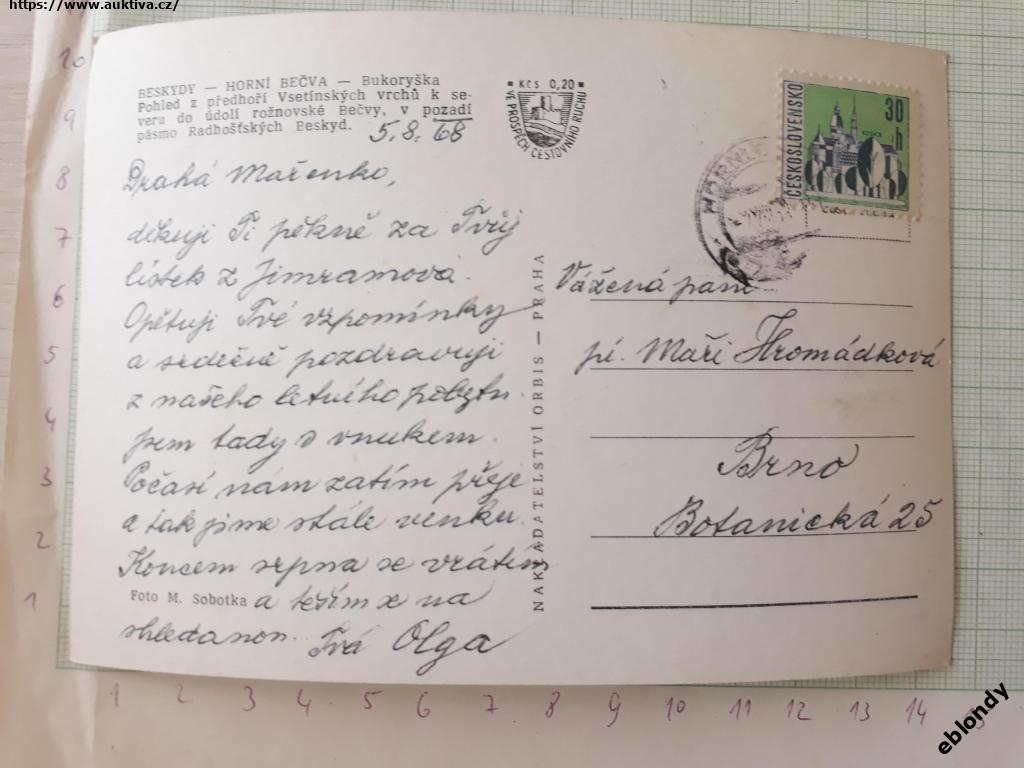 https://www.auktiva.cz/
BESKYDY — HORNÍ BEČVA — Bukoryška
Pohled z předhoří Vsetínských vrchů k se-
veru do údolí rožnovské Bečvy, v pozadí
pásmo Radbošťských Beskyd.
5.8.68
Drahá Mařenko,
děkuji Ti pěkně za Tvůj
lístek z Jimramova.
Opětuji Tvé vzpomínky
a srdečně pozdravuji
z našeho letního pobytu.
jsem tady s vnukem.
Počasí nám zatím přeje
a tak jsme stále venku.
Koncem srpna se vrátím
Foto M. Sobotka
a těším se na
shledanou. Tvá Olga
NAKLADATELSTVÍ ORBIS — PRAHA
KČS 0,20
VE PROSPĚCH CESTOVNÍHO RUCHU
ČESKOSLOVENSKO
30 h
KOŠICE
HORNÍ
Vážená paní
pí. Maří Hromádková
Brno
Botanická 25
10
9
8
7
6
5
4
3
2
1
1 2 3 4 5 6 7 8 9 10 11 12 13 14
eblondy